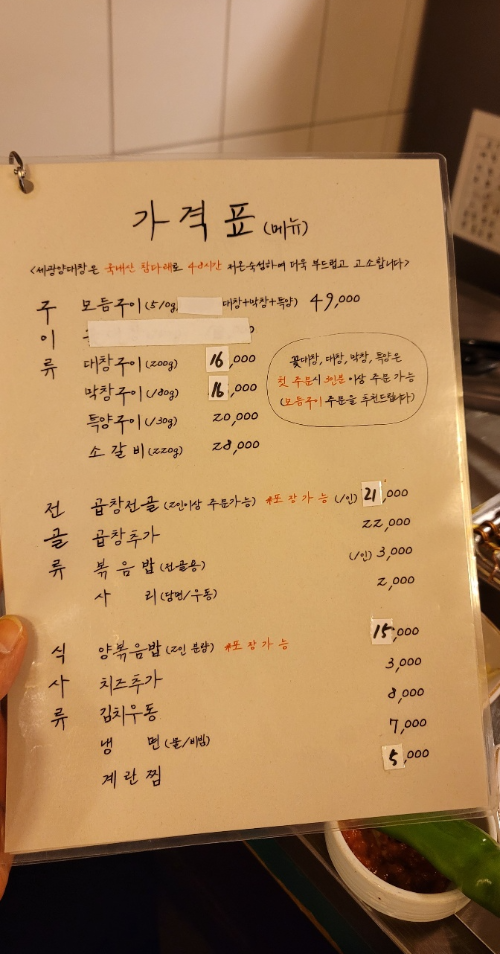 가격표 (메뉴)
<세광양대창은 국내산 참다래로 48시간 저온숙성하여 더욱 부드럽고 고소합니다>
주 모듬구이(510g, 대창+막창+특양) 49,000
이
류 대창구이(200g) 16,000
막창구이(180g) 16,000
특양구이(130g) 20,000
소갈비(220g) 28,000
꽃대창, 대창, 막창, 특양은
첫 주문시 3인분 이상 주문 가능
(모듬구이 주문을 추천드립니다)
전 곱창전골(2인이상 주문가능) #포장가능 (1인) 21,000
골 곱창추가 22,000
류 볶음밥(전골용) (1인) 3,000
사 리(당면/우동) 2,000
식 양볶음밥(2인 분량) #포장가능 15,000
사 치즈추가 3,000
류 김치우동 8,000
냉 면(물/비빔) 7,000
계란찜 5,000